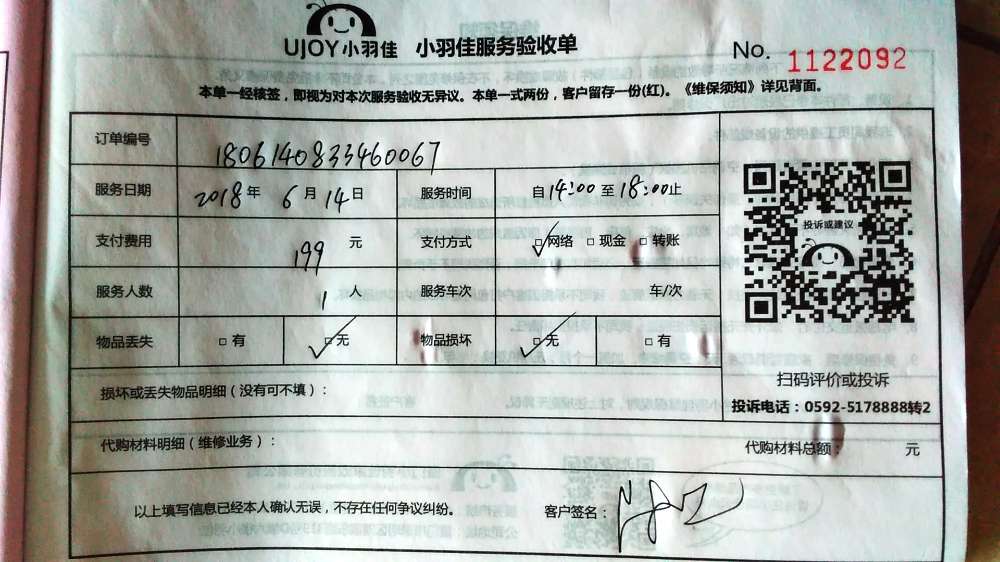 UJOY小羽佳 小羽佳服务验收单 No. 1122092
本单一经核签，即视为对本次服务验收无异议。本单一式两份，客户留存一份(红)。《维保须知》详见背面。
订单编号 1806140833460067
服务日期 2018年 6月 14日 服务时间 自14:00至18:00止
支付费用 199元 支付方式 ☑网络 □现金 □转账
服务人数 1人 服务车次 车/次
物品丢失 □有 ☑无 物品损坏 ☑无 □有
投诉或建议
扫码评价或投诉
投诉电话：0592-5178888转2
损坏或丢失物品明细（没有可不填）：
代购材料明细（维修业务）： 代购材料总额： 元
以上填写信息已经本人确认无误，不存在任何争议纠纷。 客户签名：